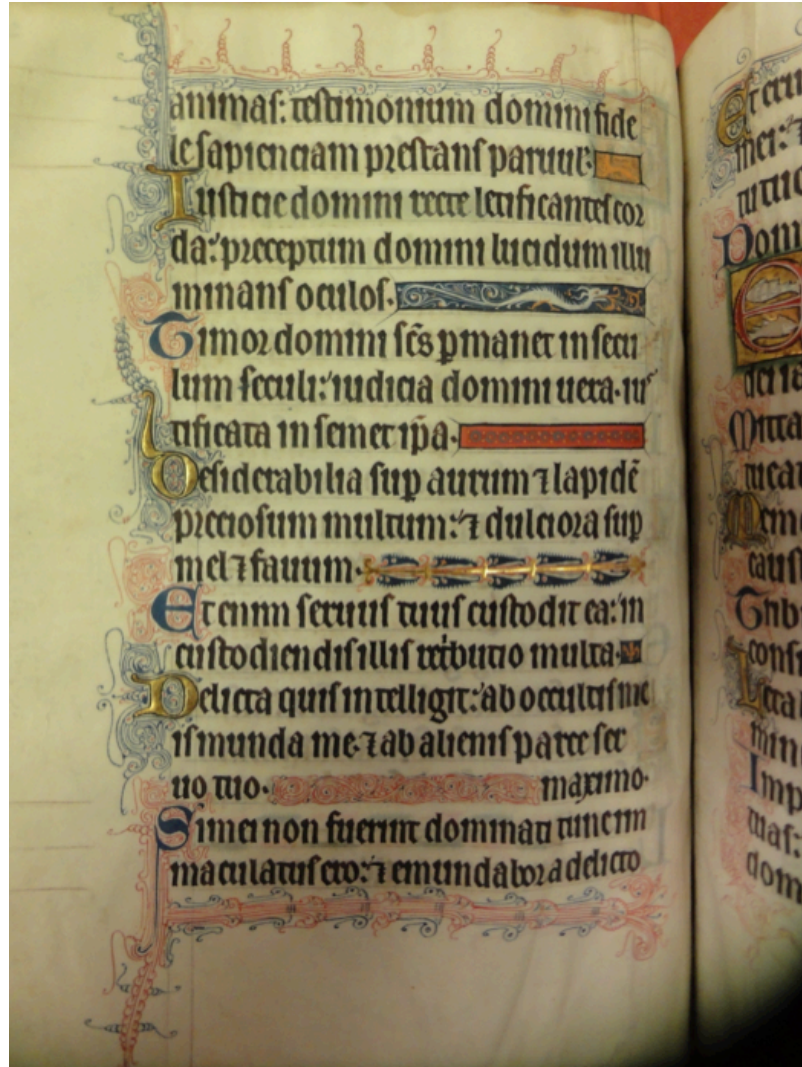 animas: testimonium domini fide
le sapienciam prestans paruul':
Iusticie domini recte letificantes cor
da: preceptum domini lucidum illu
minans oculos.
Timor domini sc̄s ꝑmanet in secu
lum seculi: iudicia domini uera. ius
tificata in semet ip̄a.
Desiderabilia suꝑ aurum ⁊ lapidē
preciosum multum: ⁊ dulciora suꝑ
mel ⁊ fauum.
Et enim seruus tuus custodit ea: in
custodiendis illis retributio multa.
Delicta quis intelligit: ab occultis me
is munda me. ⁊ ab alienis parce ser
uo tuo. maximo.
Si mei non fuerint dominati tunc im
maculatus ero: ⁊ emundabor a delicto
Et
mei:
Dom
E
dei
Mitta
tueat
Mem
caus
Trib
consi
Leta
min
Imp
tuas:
dom